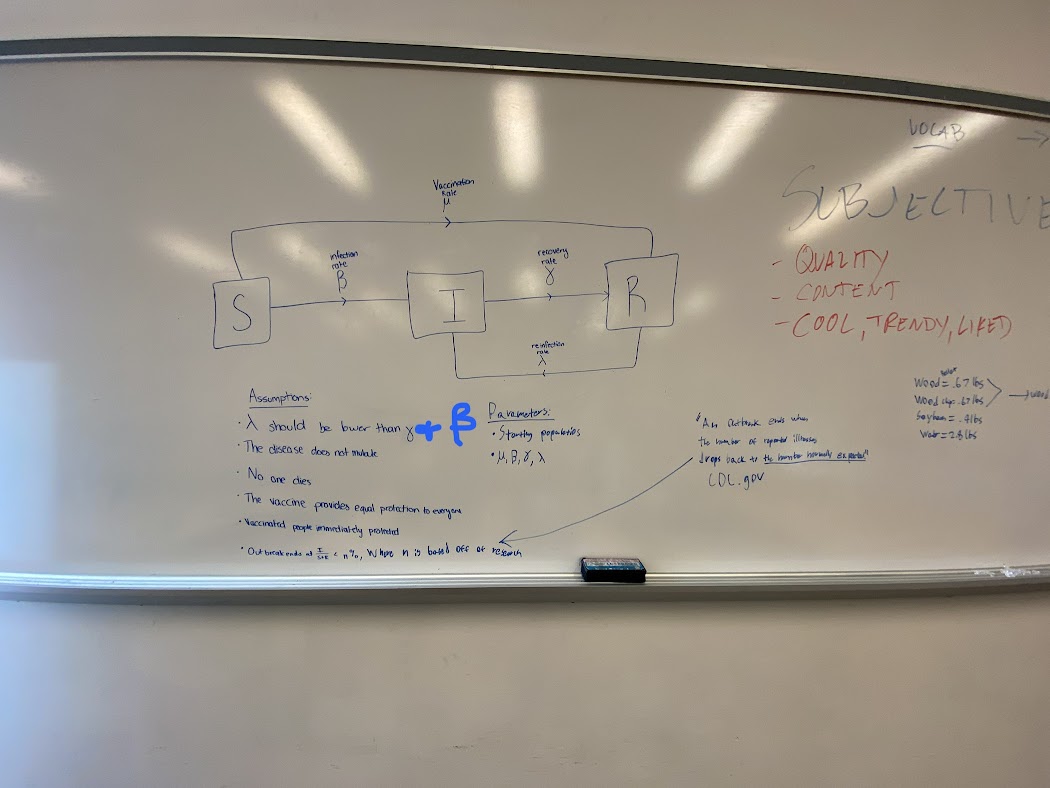 Vaccination
Rate
μ
infection
rate
β
recovery
rate
γ
S
I
R
reinfection
rate
λ
Assumptions:
· λ should be lower than γ + β
· The disease does not mutate
· No one dies
· The vaccine provides equal protection to everyone
· Vaccinated people immediately protected
· Outbreak ends at I/S+R < n%, where n is based off of research
Parameters:
· Starting population
· μ, β, γ, λ
"An outbreak ends when
the number of reported illnesses
drops back to the number normally expected"
CDC.gov
VOCAB →
SUBJECTIVE
- QUALITY
- CONTENT
- COOL, TRENDY, LIKED
Wood = .67 lbs
Wood = .67 lbs
Soybean = .4 lbs
= 2.8 lbs